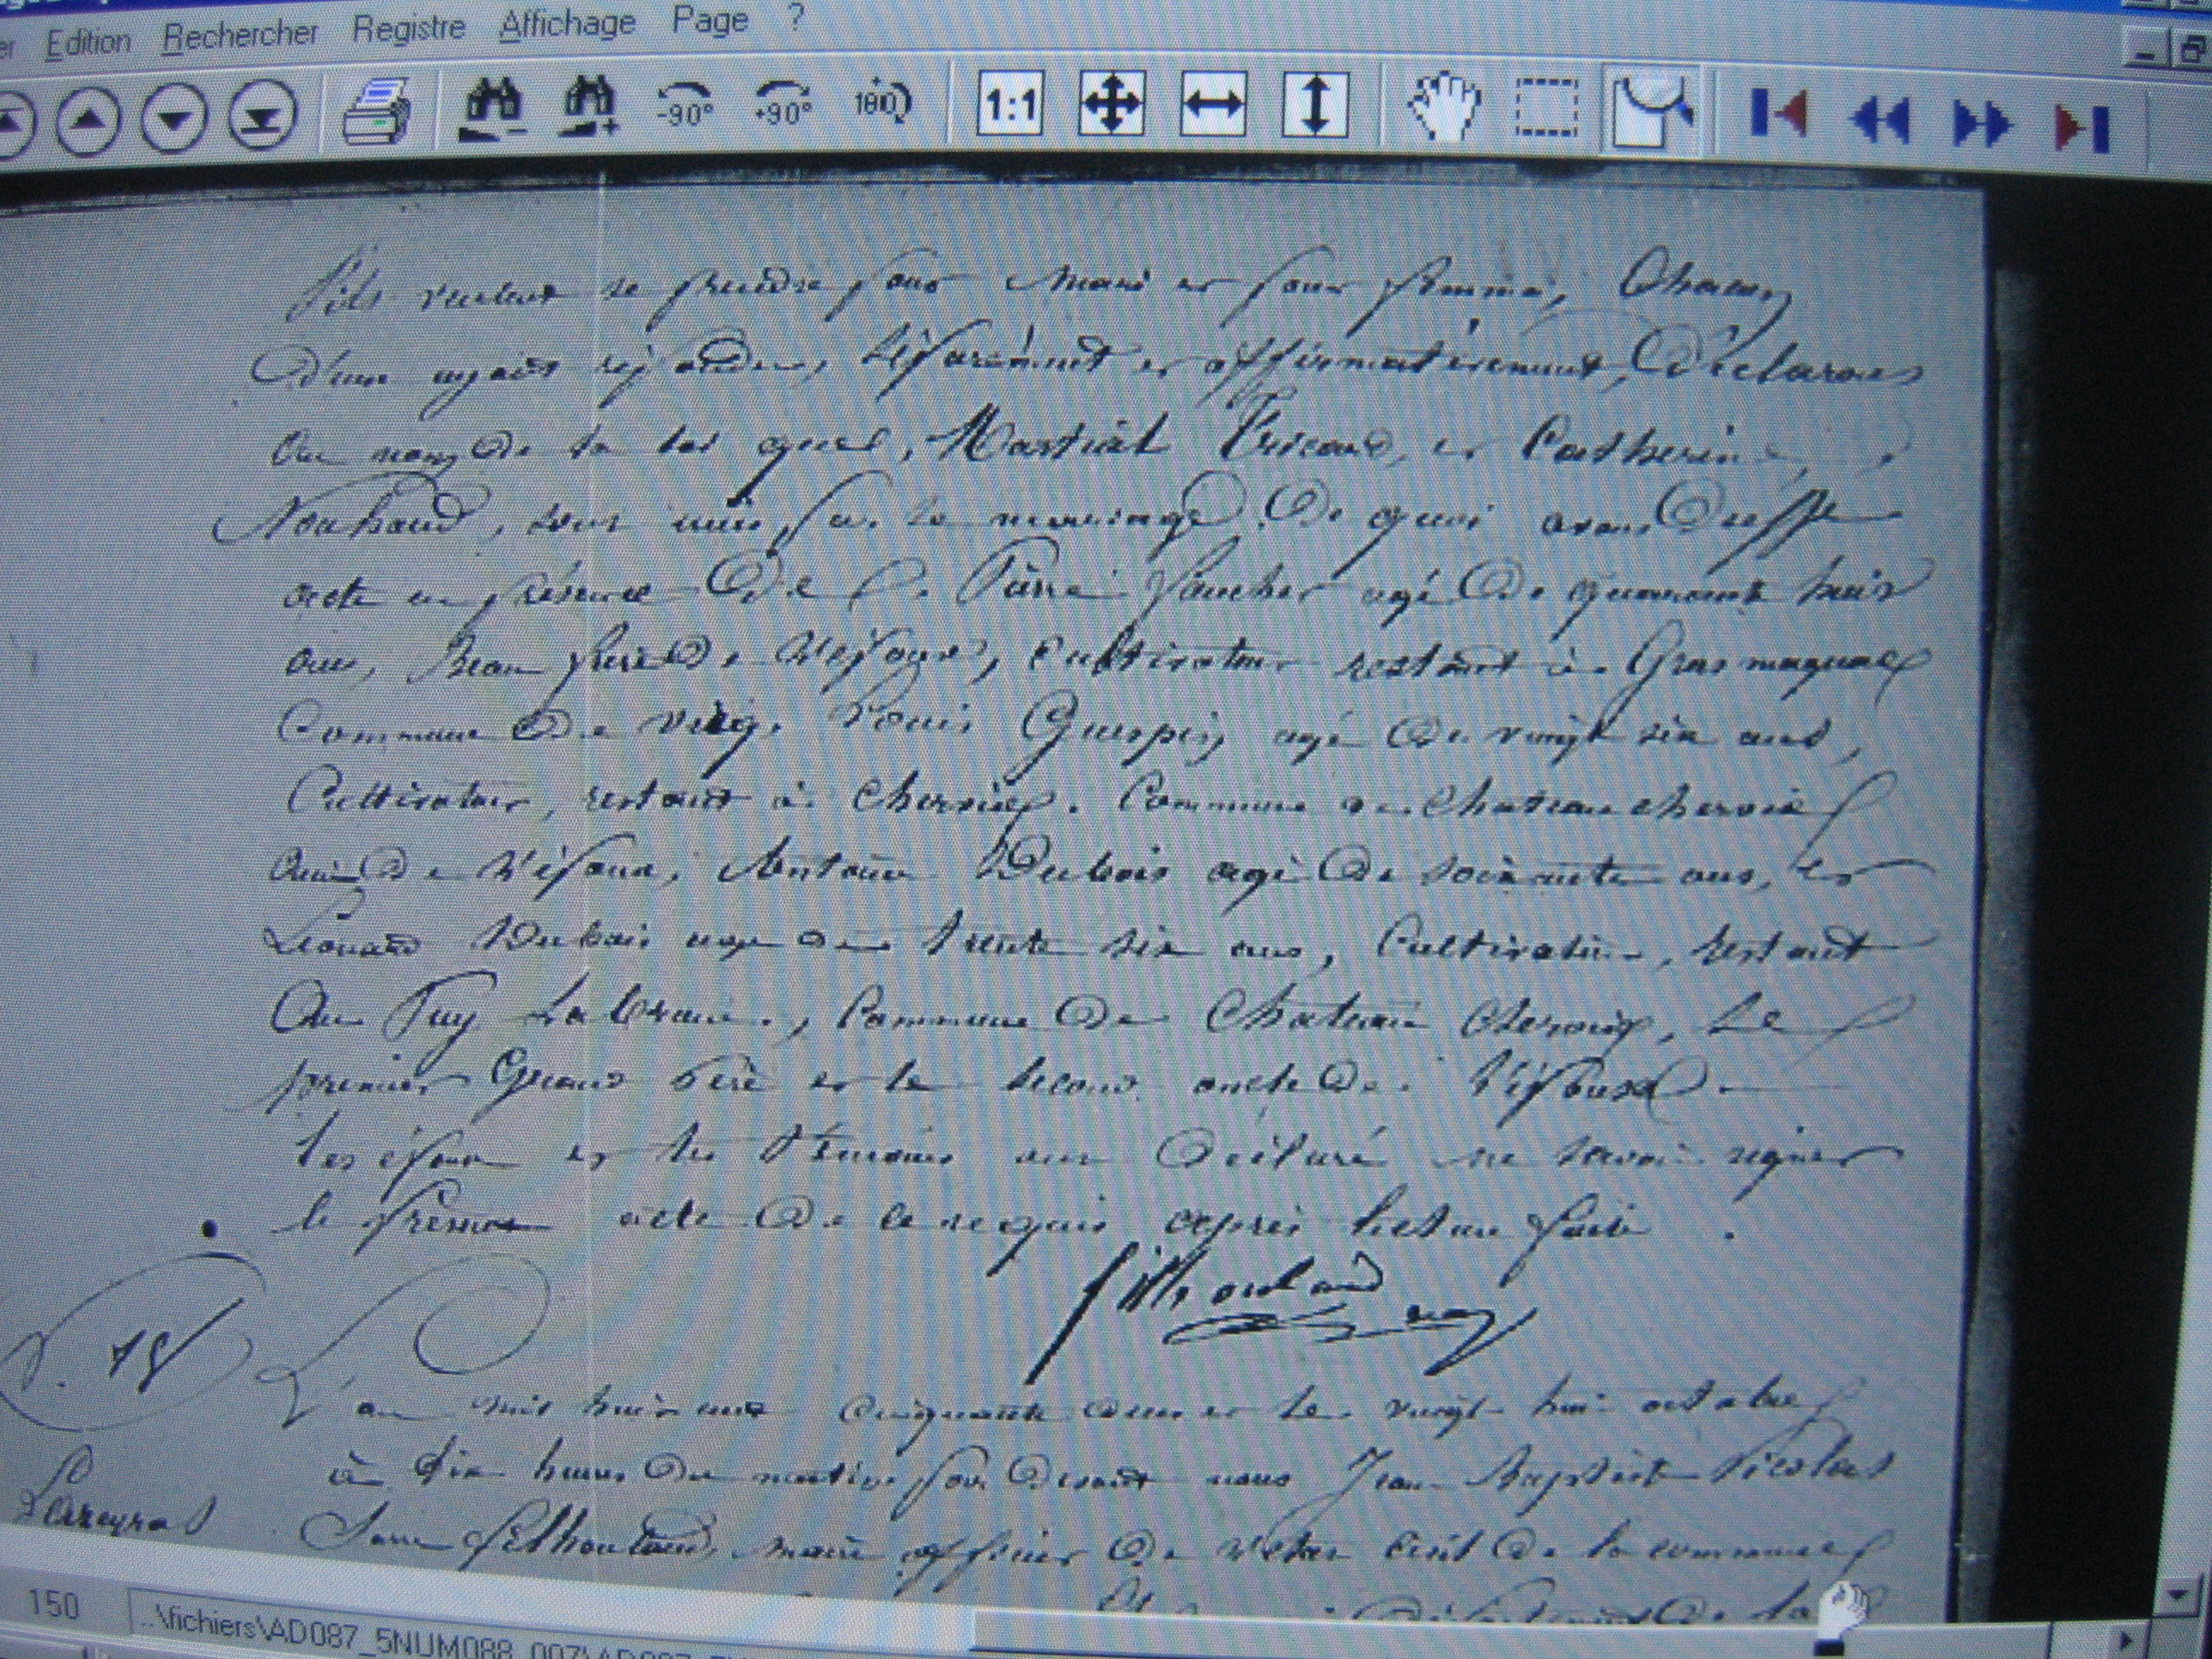 Edition Rechercher Registre Affichage Page ?
-90° +90° 180 1:1
S'ils veulent se prendre pour mari et pour femme, Chacun
D'eux ayant répondu, séparément et affirmativement, Déclarons
Au nom de la loi que, Martial Tricaud, et Catherine
Nouhaud, sont unis par le mariage. De quoi avons Dressé
acte en présence De Pierre Faucher agé De quarante huit
ans, Beau frere De l'époux, Cultivateur restant à Gros magnac
Commune De vicq. Louis Guespin agé De vingt six ans,
Cultivateur, restant à Chervix. Commune de Chateau chervix
Ami De l'époux, Antoine Dubois agé De soixante ans, et
Léonard Dubois agé De trente six ans, Cultivateur, restant
Au Puy, Commune De Chateau Chervix, Le
premier Grand Père et le second oncle De l'épouse
Les époux et les témoins ont Déclaré ne savoir signer
le présent acte De ce requis après lecture faite.
filhoulaud
18
L'an mil huit cent cinquante deux et le vingt huit octobre
à dix heures Du matin par Devant nous Jean Baptiste Nicolas
filhoulaud, maire officier De l'état Civil De la commune
Département De la
150
..\fichiers\AD087_5NUM088_007\AD087